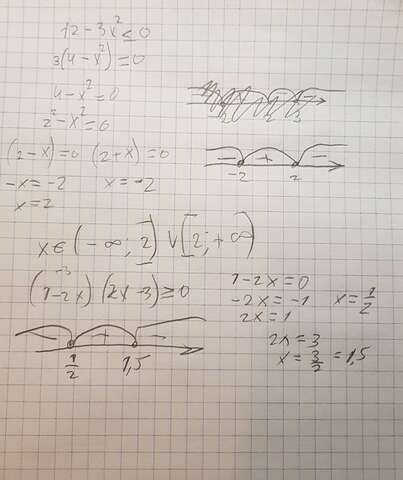 12 - 3x² ≤ 0
3(4 - x²) = 0
4 - x² = 0
2² - x² = 0
(2 - x) = 0 (2 + x) = 0
-x = -2 x = -2
x = 2
- + -
-2 2
x ∈ (-∞; 2] V [2; +∞)
(1 - 2x) (2x - 3) ≥ 0
- + -
1/2 1,5
1 - 2x = 0
-2x = -1 x = 1/2
2x = 1
2x = 3
x = 3/2 = 1,5